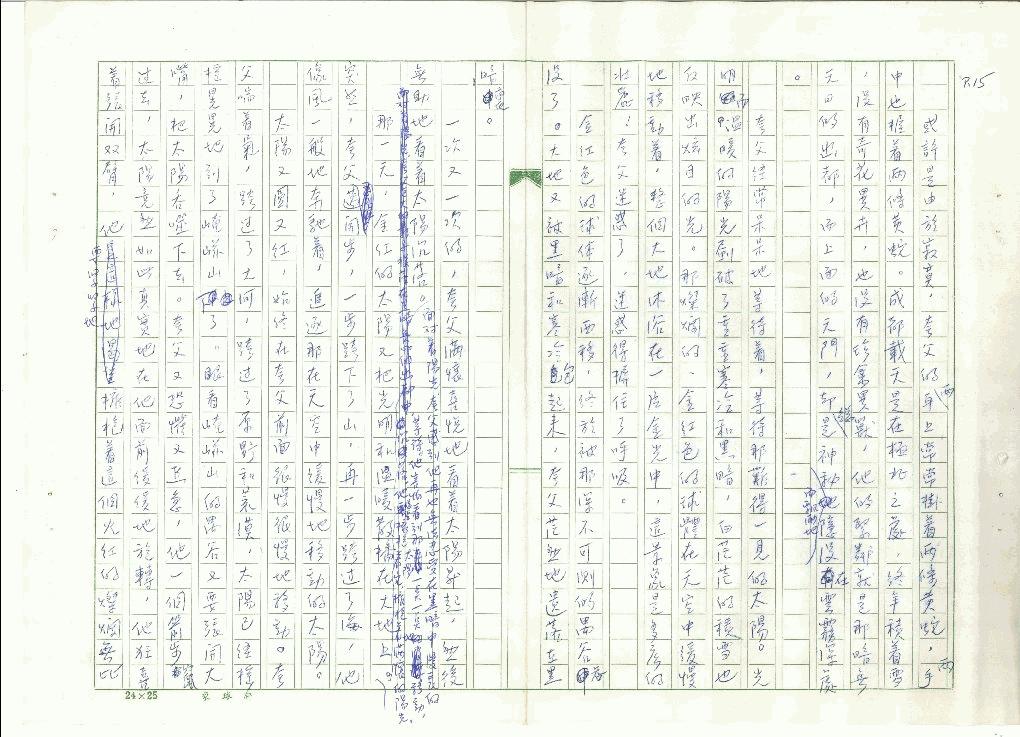 P.15
或許是由於寂寞，夸父的耳上常常掛著兩條黃蛇，手
中也握着兩條黃蛇。成都載天是在極北之處，終年積着雪
，沒有奇花異卉，也沒有珍禽異獸，他的緊鄰就是那暗無
天日的幽都，而上面的天門，卻是神秘地隱沒在雲霧深處
。
夸父經常呆呆地等待着，等待那難得一見的太陽。光
明而溫暖的陽光刺破了重重寒冷和黑暗，白茫茫的積雪也
反映出炫目的光。那燦爛的、金紅色的球體在天空中緩慢
地移動着，整個大地沐浴在一片金光中，這景象是多麼的
壯麗！夸父迷惑了，迷惑得摒住了呼吸。
金紅色的球體逐漸西移，終於被那深不可測的禺谷吞
沒了。大地又被黑暗和寒冷包起來，夸父茫然地遺落在黑
暗裏。
一次又一次的，夸父滿懷喜悅地看着太陽昇起，然後
無助地看着太陽沉落。
那一天，金紅的太陽又把光明和溫暖散播在大地上。
突然，夸父邁開步，一步跨下了山，再一步跨过了海，他
像風一般地奔馳着，追逐那在天空中緩慢地移動的太陽。
太陽又圓又紅，始終在夸父前面很慢很慢地移動。夸
父喘着氣，跨過了大河，跨過了原野和荒漠，太陽已經搖
搖晃晃地到了崦嵫山下了。眼看崦嵫山的禺谷又要張開大
嘴，把太陽吞噬下去。夸父又恐懼又焦急，他一個箭步竄
过去，太陽竟然如此真實地在他面前緩緩地旋轉，他狂喜
着張開双臂，他要牢牢地擁抱着這個火紅的燦爛無比
24×25